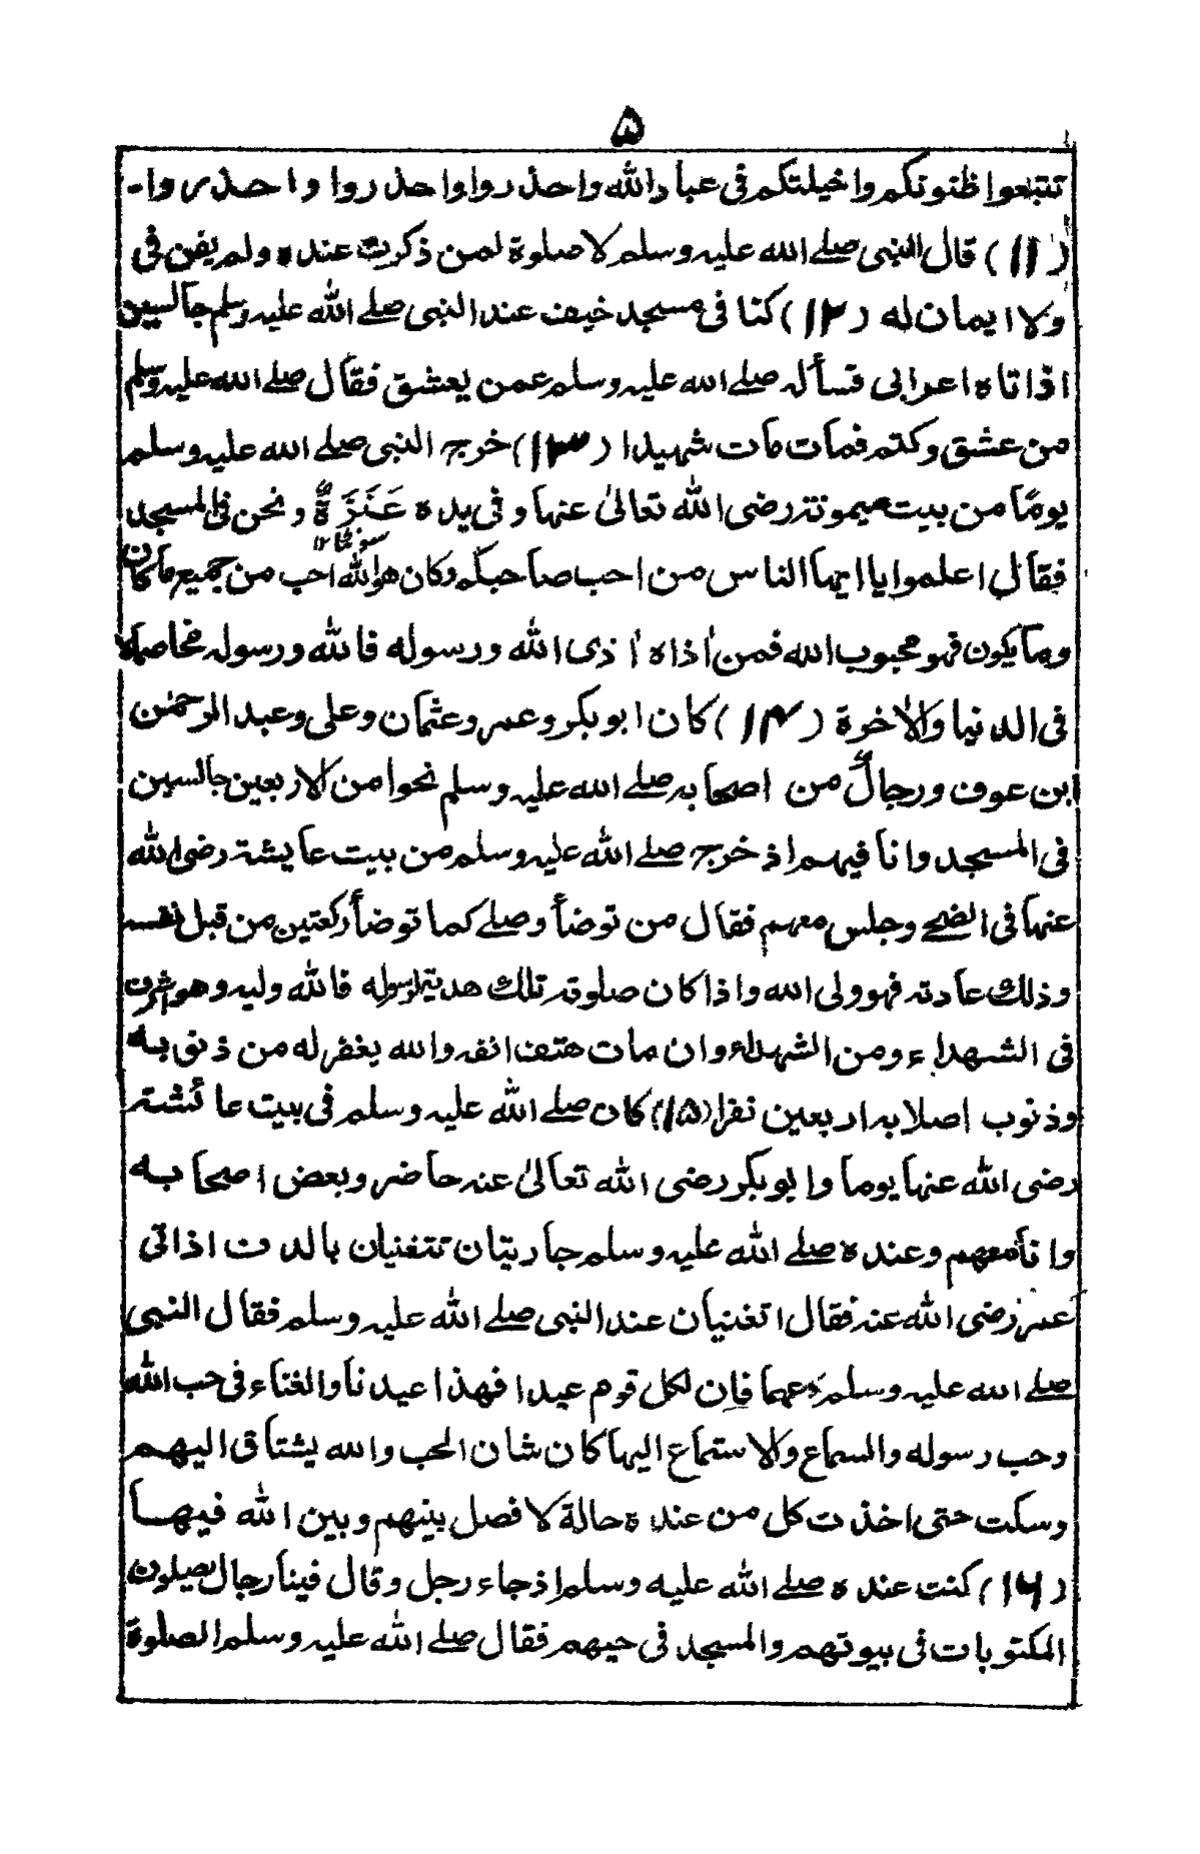 ۵
تتبعوا ظنونكم واخيلتكم فى عباد الله واحذروا واحذروا واحذروا-
(۱۱) قال النبى صلے الله عليه وسلم لا صلوة لمن ذكرت عنده ولم يفن فى
ولا ايمان له (۱۲) كنا فى مسجد خيف عند النبى صلے الله عليه وسلم جالسين
اذا تاه اعرابى فسأله صلے الله عليه وسلم عمن يعشق فقال صلے الله عليه وسلم
من عشق وكتم فمات مات شهيدا (۱۳) خرج النبى صلے الله عليه وسلم
يومًا من بيت ميمونة رضى الله تعالىٰ عنها و فى يده عَنَزَةٌ ونحن فى المسجد
فقال اعلموا يا ايها الناس من احب صاحبكم وكان هو الله احب من جميع ما كان
وما يكون فهو محبوب الله فمن اٰذاه اٰذى الله ورسوله فالله ورسوله
فى الدنيا والاٰخرة (۱۴) كان ابو بكر وعمر وعثمان وعلى وعبد الرحمٰن
ابن عوف ورجالٌ من اصحابه صلے الله عليه وسلم نحوا من الاربعين جالسين
فى المسجد وانا فيهم اذ خرج صلے الله عليه وسلم من بيت عايشة رضى الله
عنها فى الضحے وجلس معهم فقال من توضأ وصلے كما توضأ ركعتين من قبل نفسه
وذلك عادته فهو ولى الله واذا كان صلوته تلك هدية لرسوله فالله وليه وهو
فى الشهداء ومن الشهداء وان مات هتف انفه والله يغفر له من ذنوبه
وذنوب اصلابه اربعين نفرا (۱۵) كان صلے الله عليه وسلم فى بيت عائشة
رضى الله عنها يوما وابو بكر رضى الله تعالىٰ عنه حاضر وبعض اصحابه
وانا معهم وعنده صلے الله عليه وسلم جاريتان تتغنيان بالدف اذاتى
عمر رضى الله عنه فقال اتغنيان عند النبى صلے الله عليه وسلم فقال النبى
صلے الله عليه وسلم دعهما فإن لكل قوم عيدا فهذا عيدنا والغناء فى حب الله
وحب رسوله والسماع والاستماع اليها كان شان المحب والله يشتاق اليهم
وسكت حتى اخذت كل من عنده حالة لا فصل بينهم وبين الله فيها
(۱۶) كنت عنده صلے الله عليه وسلم اذ جاء رجل وقال فينا رجال يصلون
المكتوبات فى بيوتهم والمسجد فى حيهم فقال صلے الله عليه وسلم الصلوة